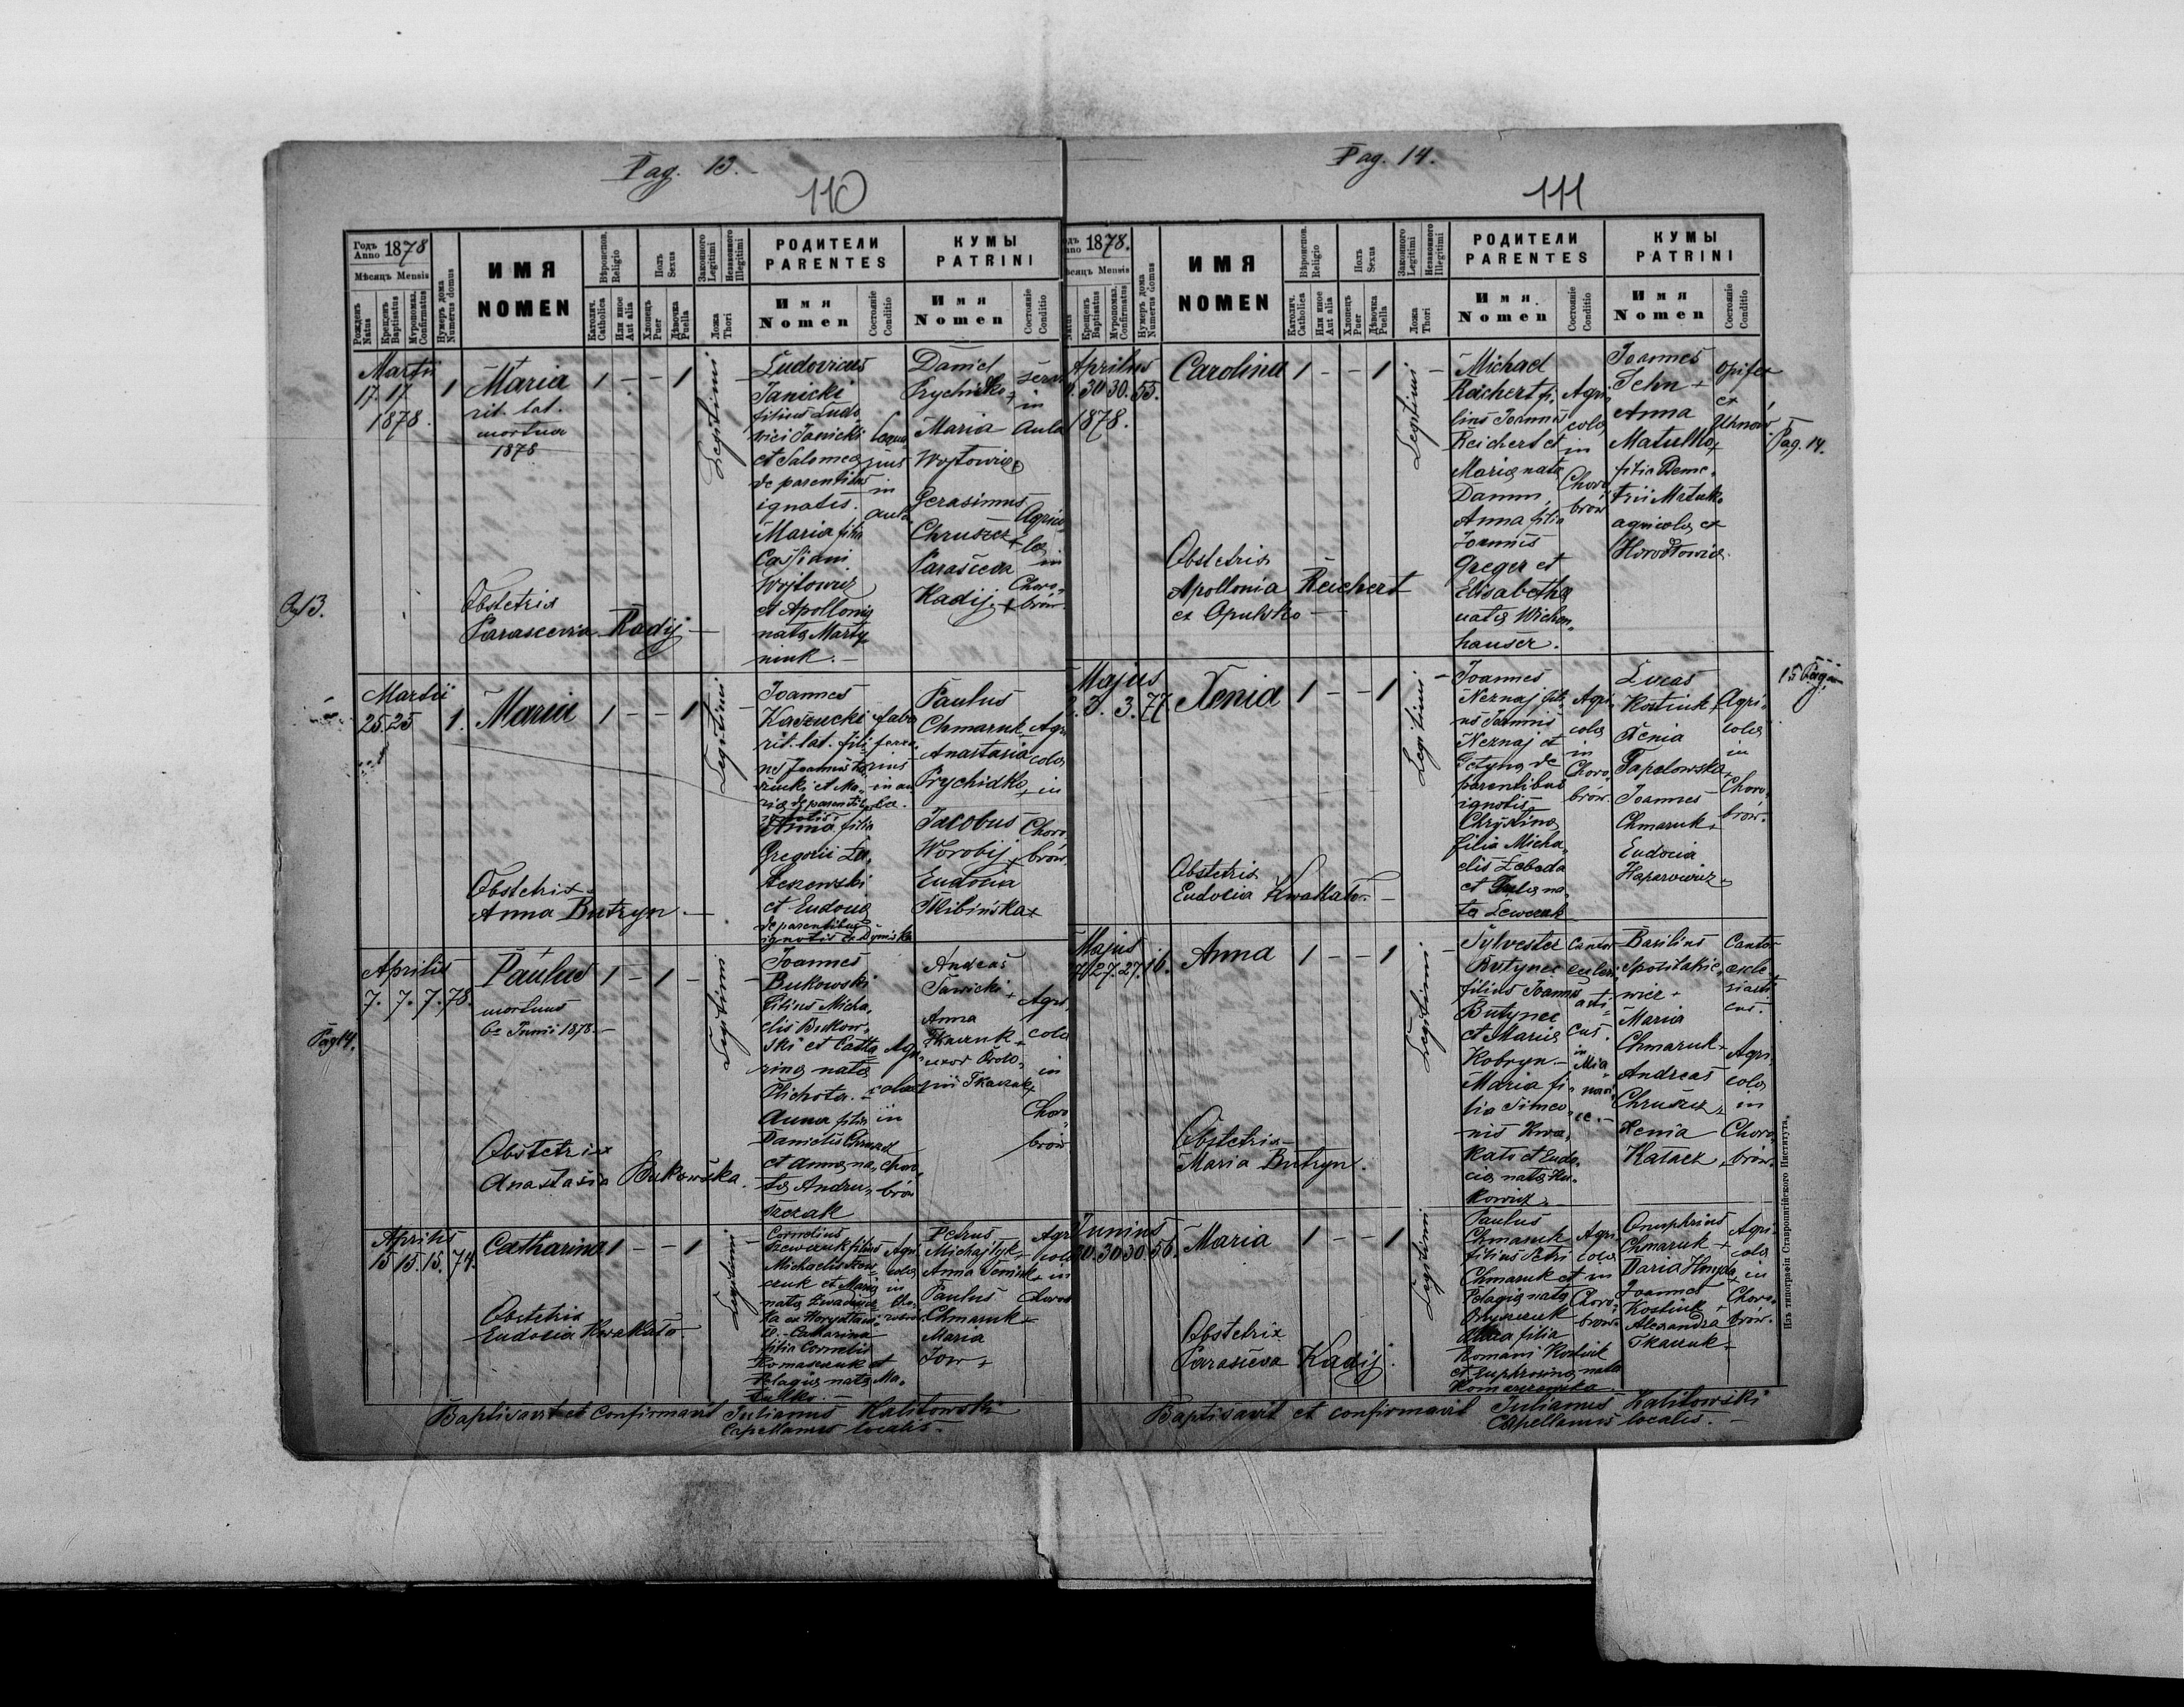 Pag. 13.
110
Годъ
Anno 1878
Мѣсяцъ Mensis
Рожденъ
Natus
Крещенъ
Baptisatus
Мѵропомаз.
Confirmatus
Нумеръ дома
Numerus domus
ИМЯ
NOMEN
Вѣроиспов.
Religio
Католич.
Catholica
Или иное
Aut alia
Полъ
Sexus
Хлопецъ
Puer
Дѣвочка
Puella
Законного
Legitimi
Незаконного
Illegitimi
Ложа
Thori
РОДИТЕЛИ
PARENTES
Имя
Nomen
Состояніе
Conditio
КУМЫ
PATRINI
Имя
Nomen
Состояніе
Conditio
Martii
17. 17. 1
1878.
Maria
rit. lat.
mortua
1878
Obstetrix
Parascevia Kadij
1 - - 1
Legitimi
Ludovicus
Janicki
filius Ludo
vici Janicki
et Salomea
de parentibus
ignatis.
Maria filia
Cassiani
Wojtowicz
et Apollonia
nata Marty
niuk.
in
aula
Daniel
Prychidko +
Maria
Wojtowicz
Gerasimus
Chruszcz +
Parasceva
Kadij +
in
Aula
Agrico
lae
in
Choro
brów.
Martii
25. 25 1.
Maria
Obstetrix
Anna Butryn.
1 - - 1
Legitimi
Joannes
Kaszucki
rit. lat. fili
et Ma
ria de parentib.
ignotis.
Anna filia
Gregorii
et Eudocia
de parentibus
ignotis
Paulus
Chmaruk
Anastasia
Prychidko +
Jacobus
Worobij +
Eudocia
Skibińska +
Agri
colae
in
Choro
brów.
Aprilis
7. 7. 7. 78.
Paulus
mortuus
6a Junii 1878.
Obstetrix
Anastasia Bukowska.
1 - 1 -
Legitimi
Joannes
Bukowski
filius Micha
elis Bukow
ski et Catha
rina nata
Plichota.
Anna filia
Danielis
et Anna na
ta Andru
szczak
Agri
colae
in
Choro
brów
Andreas
Sawicki +
Anna
Tkaczuk
uxor
Tkaczuk +
Agri
colae
in
Choro
brów
Aprilis
15 15. 15. 74.
Catharina
Obstetrix
Eudocia Kwakało
1 - - 1
Legitimi
Cornelius
Szewczuk filius
Michaelis Szew
czuk et Maria
nata
Catharina
filia Cornelii
Romaszczuk et
Pelagia nata Ma
tulko.
Petrus
Michajlyk +
Anna
Paulus
Chmaruk +
Maria
Jow +
Agri
colae
in
Baptisavit et confirmavit Julianus Kalitowski
Capellanus localis.
Pag 14.
Pag. 14.
111
1878.
Мѣсяцъ Mensis
Natus
Крещенъ
Baptisatus
Мѵропомаз.
Confirmatus
Нумеръ дома
Numerus domus
ИМЯ
NOMEN
Вѣроиспов.
Religio
Католич.
Catholica
Или иное
Aut alia
Полъ
Sexus
Хлопецъ
Puer
Дѣвочка
Puella
Законного
Legitimi
Незаконного
Illegitimi
Ложа
Thori
РОДИТЕЛИ
PARENTES
Имя
Nomen
Состояніе
Conditio
КУМЫ
PATRINI
Имя
Nomen
Состояніе
Conditio
Aprilis
30 30. 55.
1878.
Carolina
Obstetrix
Apollonia Reichert
ex Opulsko
1 - - 1
Legitimi
Michael
Reichert fi
lius Joannis
Reichert et
Maria nata
Damm.
Anna filia
Joannis
Greger et
Elisabetha
nata Wichen
hauser.
Agri
cola
in
Choro
brów
Joannes
Sehn +
Anna
Matulko +
filia Deme
trii Matulko
agricolae ex
Horodłowice.
Opifex
ex
Uhnów
Pag. 14.
Majus
3. 3. 77
Xenia
Obstetrix
Eudocia Kwakało
1 - - 1
Legitimi
Joannes
Neznaj fili
us Joannis
Neznaj et
de
parentibus
ignotis.
Christina
filia Micha
elis Lebeda
et Julia na
ta Lewczuk
Agri
colae
in
Choro
brów.
Lucas
Kostiuk +
Xenia
Joannes
Chmaruk +
Eudocia
Agri
colae
in
Choro
brów.
15 Pag.
Majus
27. 27. 16.
Anna
Obstetrix
Maria Butryn.
1 - - 1
Legitimi
Sylvester
Butynec
filius Joannis
Butynec
et Maria
Kobryn.
Maria fi
lia Simeo
nis Kwa
kało et Eudo
cia nata
Cantor
eccles
iasti
cus.
in
Basilius
Maria
Chmaruk +
Andreas
Chruszcz +
Xenia
Kałacz +
Cantor
eccle
siasti
cus.
Agri
colae
in
Choro
brów.
Junius
30. 30 30. 56.
Maria
Obstetrix
Parasceva Kadij.
1 - - 1
Legitimi
Paulus
Chmaruk
filius Petri
Chmaruk et
Pelagia nata
filia
Romani Kostiuk
et Euphrosina nata
Komaszewska
Agri
colae
in
Choro
brów.
Onuphrius
Chmaruk +
Daria Hnyda +
Joannes
Kostiuk +
Alexandra
Tkaczuk +
Agri
colae
in
Choro
brów.
Baptisavit et confirmavit Julianus Kalitowski
Capellanus localis.
Изъ типографіи Ставропигійского Института.